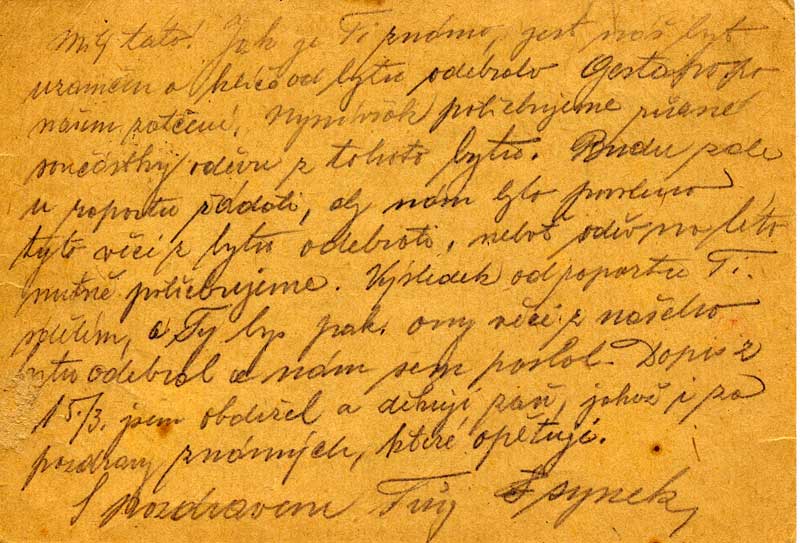 Milý táto! Jak je Ti známo, jest náš byt
uzamčen a klíč od bytu odebralo Gestapo po
našem zatčení. Nyní však potřebujeme různé
součástky oděvu z tohoto bytu. Budu zde
u raportu žádati, aby nám bylo povoleno
tyto věci z bytu odebrati, neboť oděv na léto
nutně potřebujeme. Výsledek od raportu Ti
sdělím, a Ty bys pak ony věci z našeho
bytu odebral a nám sem poslal. Dopis z
15./3. jsem obdržel a děkuji zaň, jakož i za
pozdravy známých, které opětuji.
S pozdravem Tvůj synek